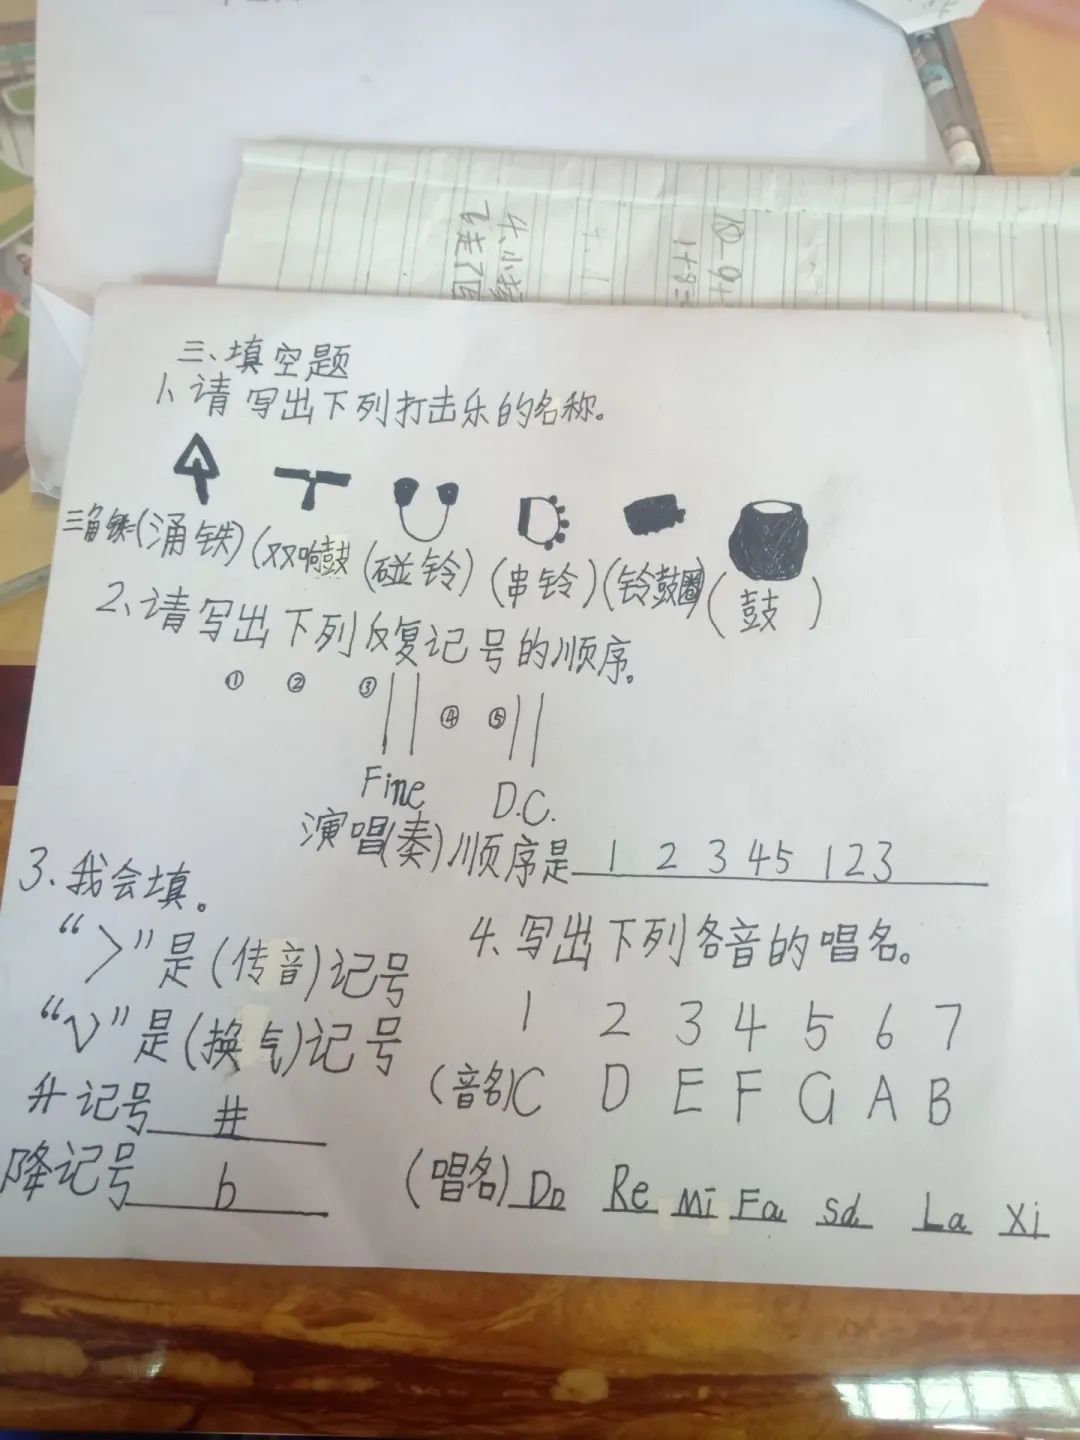 三、填空题
1、请写出下列打击乐的名称。
三角铁(涌铁)(双响鼓(碰铃)(串铃)(铃鼓圈)(鼓)
2、请写出下列反复记号的顺序。
① ② ③ ④ ⑤
Fine D.C.
演唱(奏)顺序是 1 2 3 45 123
3、我会填。
“>”是(传音)记号
“V”是(换气)记号
升记号 #
降记号 b
4、写出下列各音的唱名。
1 2 3 4 5 6 7
(音名)C D E F G A B
(唱名) Do Re Mi Fa Sol La Xi